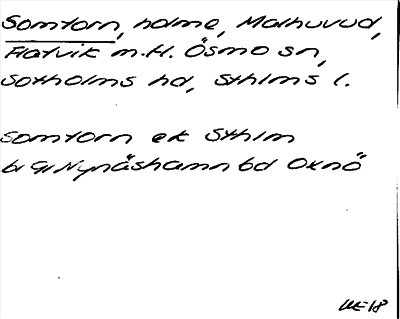 Somtorn, holme, Malhuvud,
Flatvik m.H. Ösmo sn,
Sotholms hd, Sthlms l.
Somtorn ek Sthlm
br Gr Nynåshamn bd Oknö